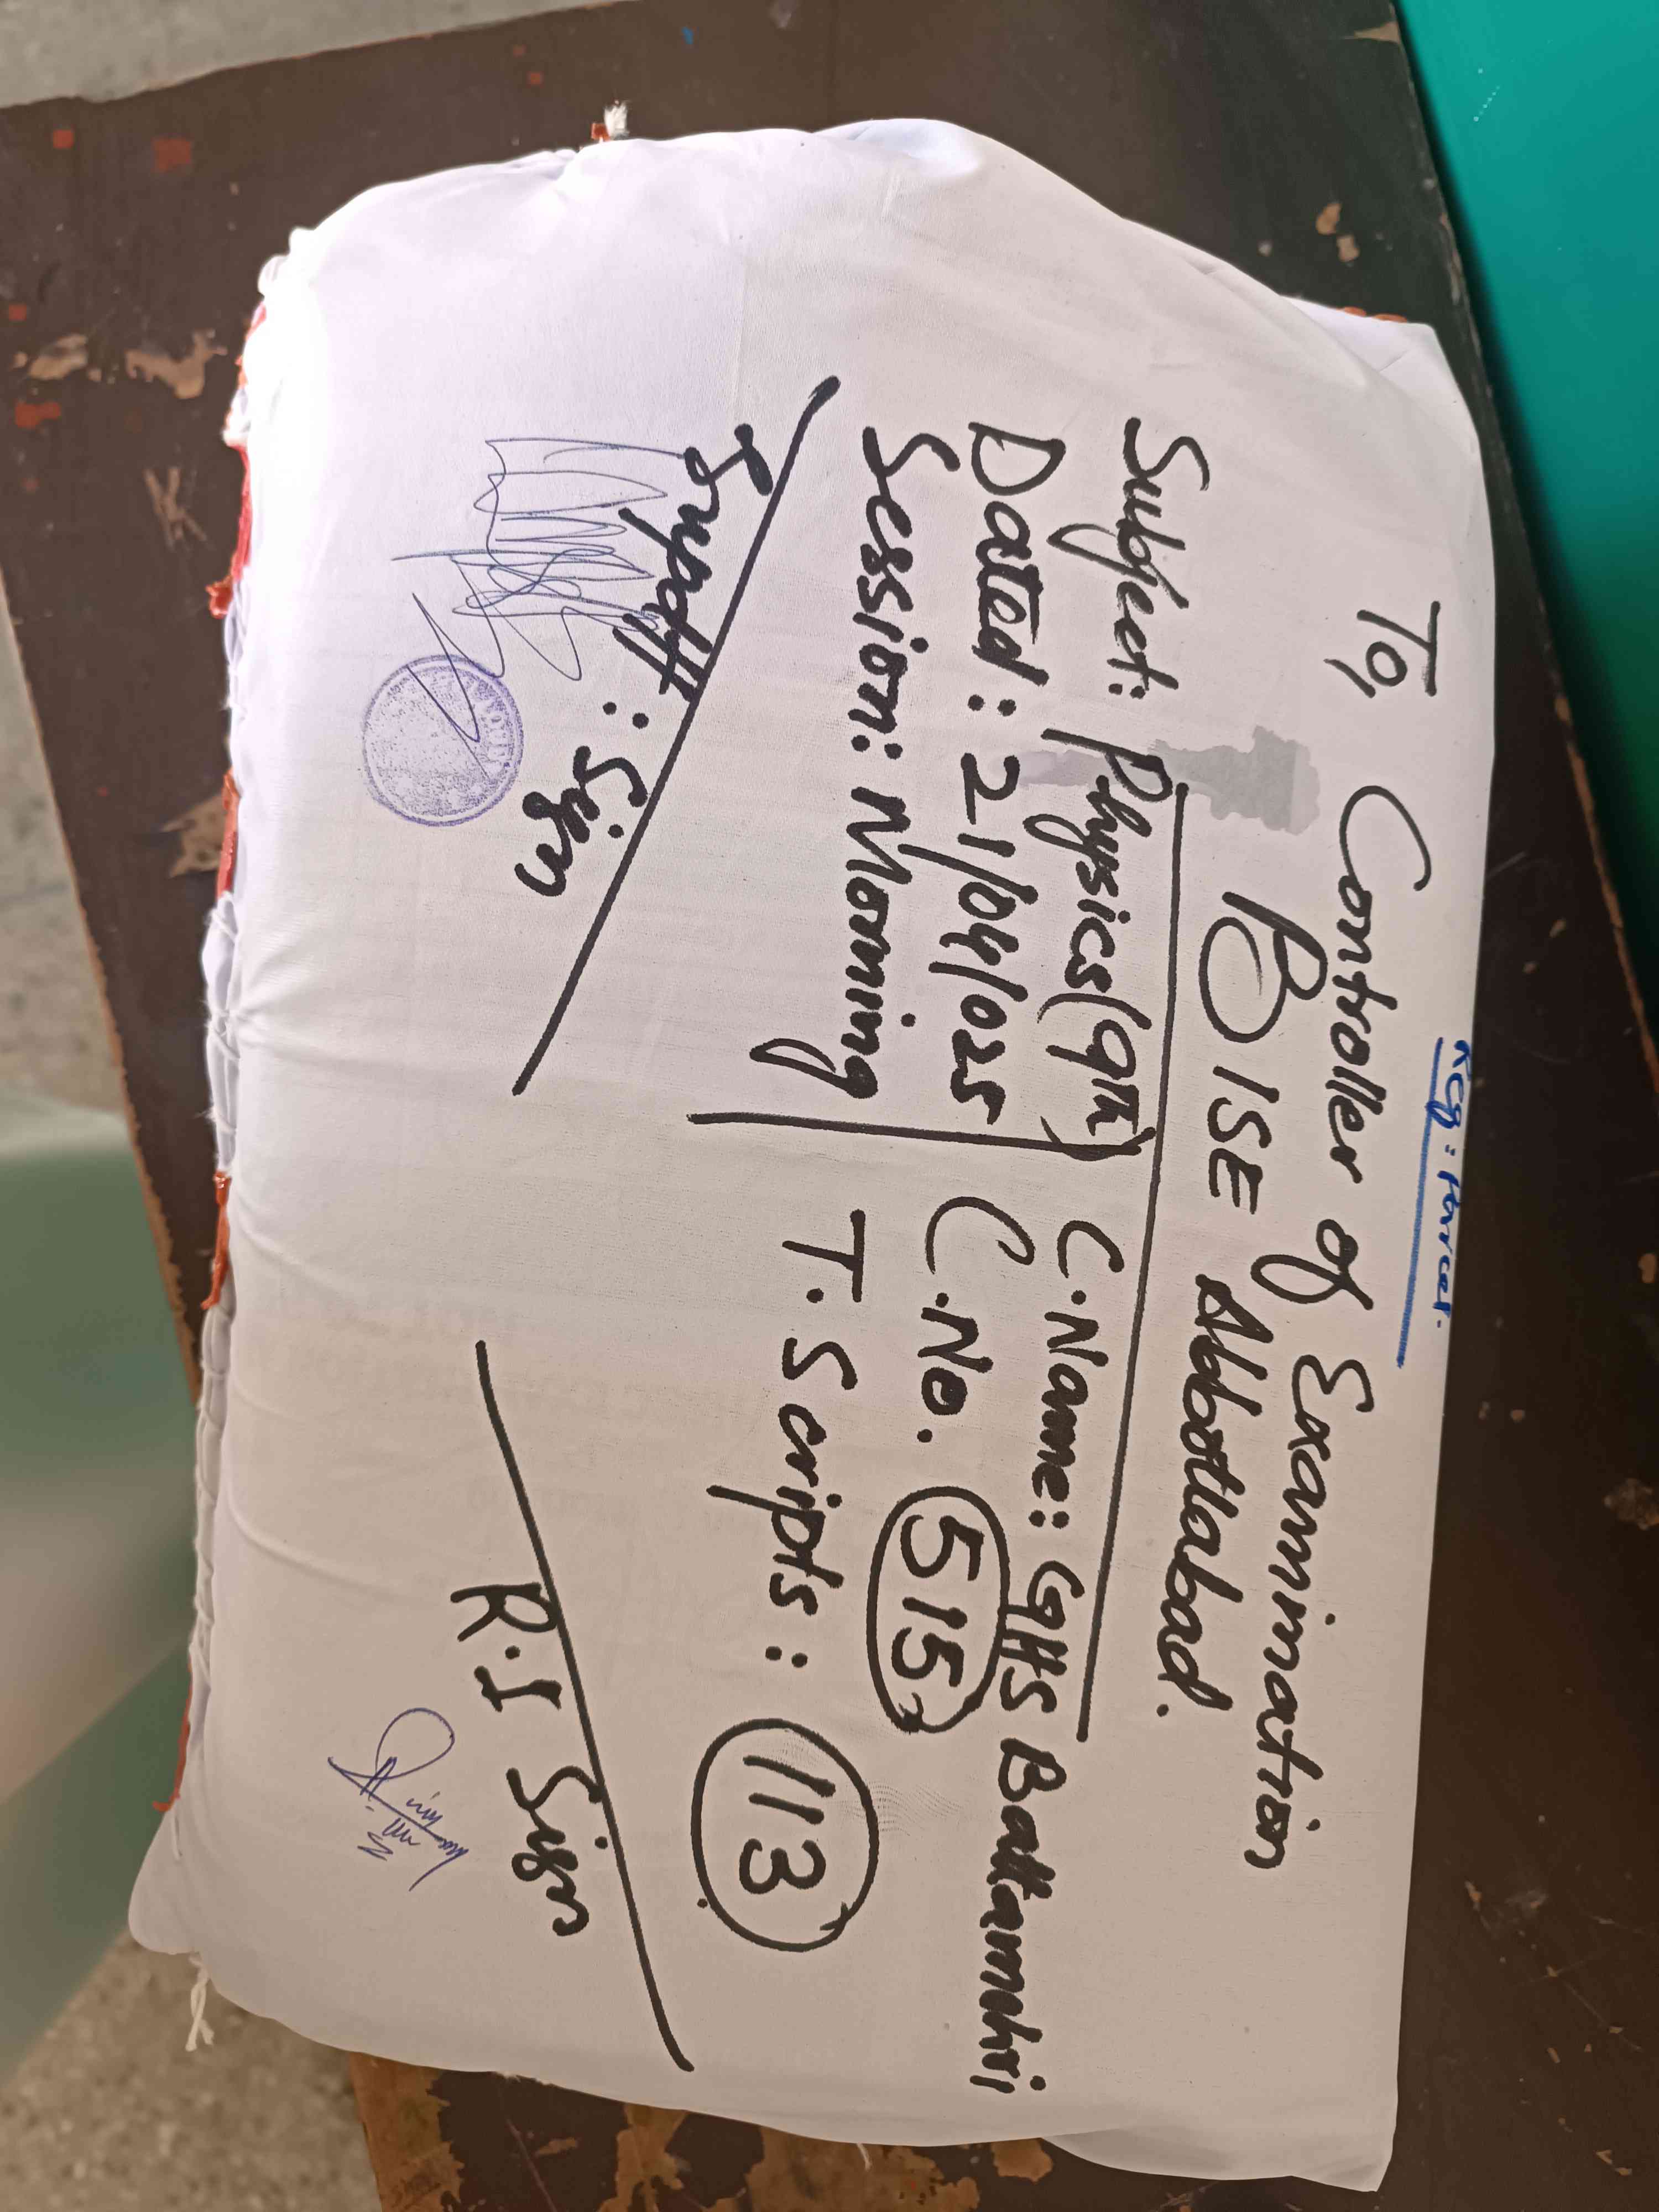 Reg: Parcel.
To, Controller of Examination
BISE Abbottabad.
Subject: Physics (9th)
Dated: 21/04/025
Session: Morning
C.Name: GHS Battamehri
C.No. 515
T.Scripts: 113
Supdtt: Sign
R.I Sign